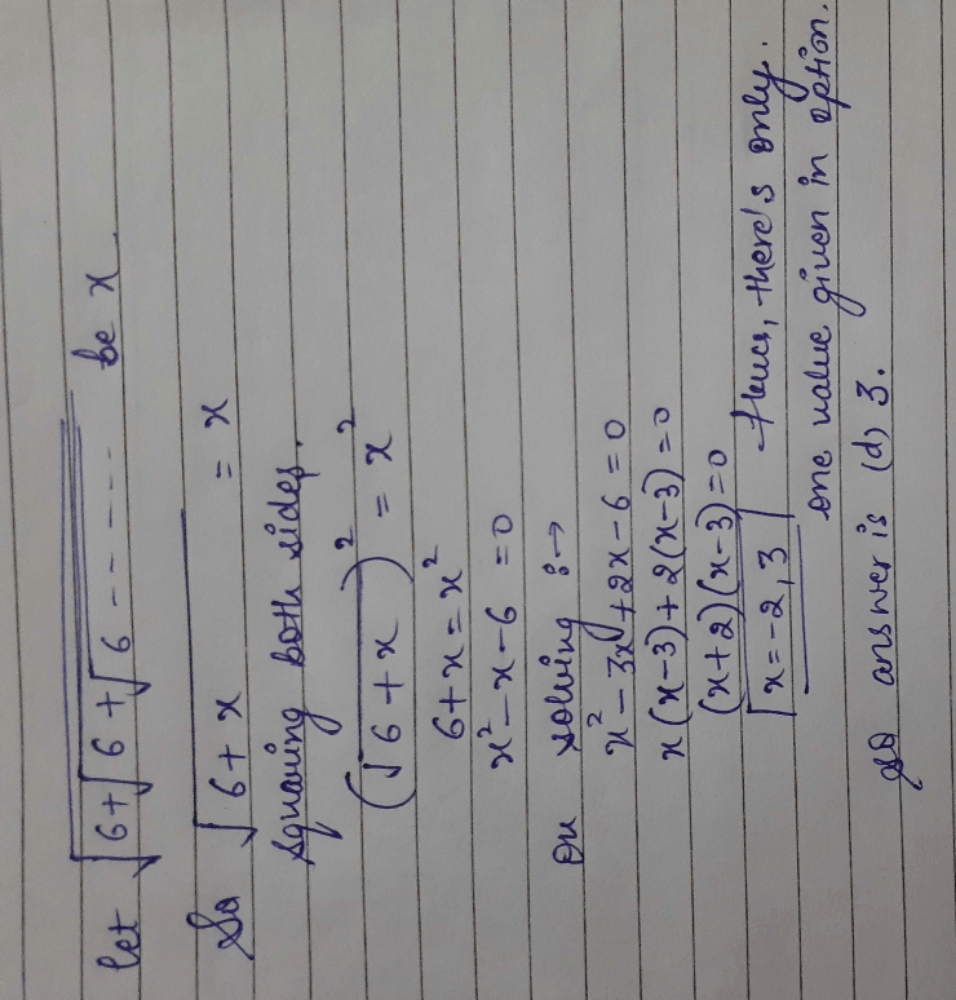 Let √6+√6+√6------ be x
So √6+x = x
Squaring both sides,
(√6+x)² = x²
6+x=x²
x²-x-6=0
On solving :→
x²-3x+2x-6=0
x(x-3)+2(x-3)=0
(x+2)(x-3)=0
x=-2,3 Hence, there's only
one value given in option.
So answer is (d) 3.